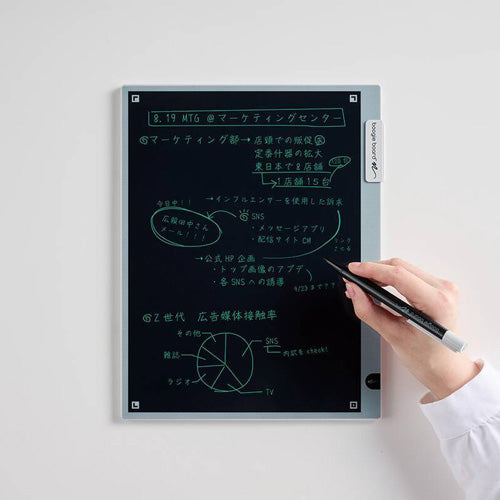 8.19 MTG @マーケティングセンター
マーケティング部→店頭での販促
定番什器の拡大
東日本で8店舗
1店舗15台
→インフルエンサーを使用した訴求
今日中!!
広報田中さん
メール!!!
SNS
・メッセージアプリ
・配信サイトCM
リンク
させる
→公式HP企画
・トップ画像のアプデ
・各SNSへの誘導
9/23まで??
Z世代 広告媒体接触率
その他
SNS
内訳をcheck!
雑誌
ラジオ
TV
boogie board
boogie board